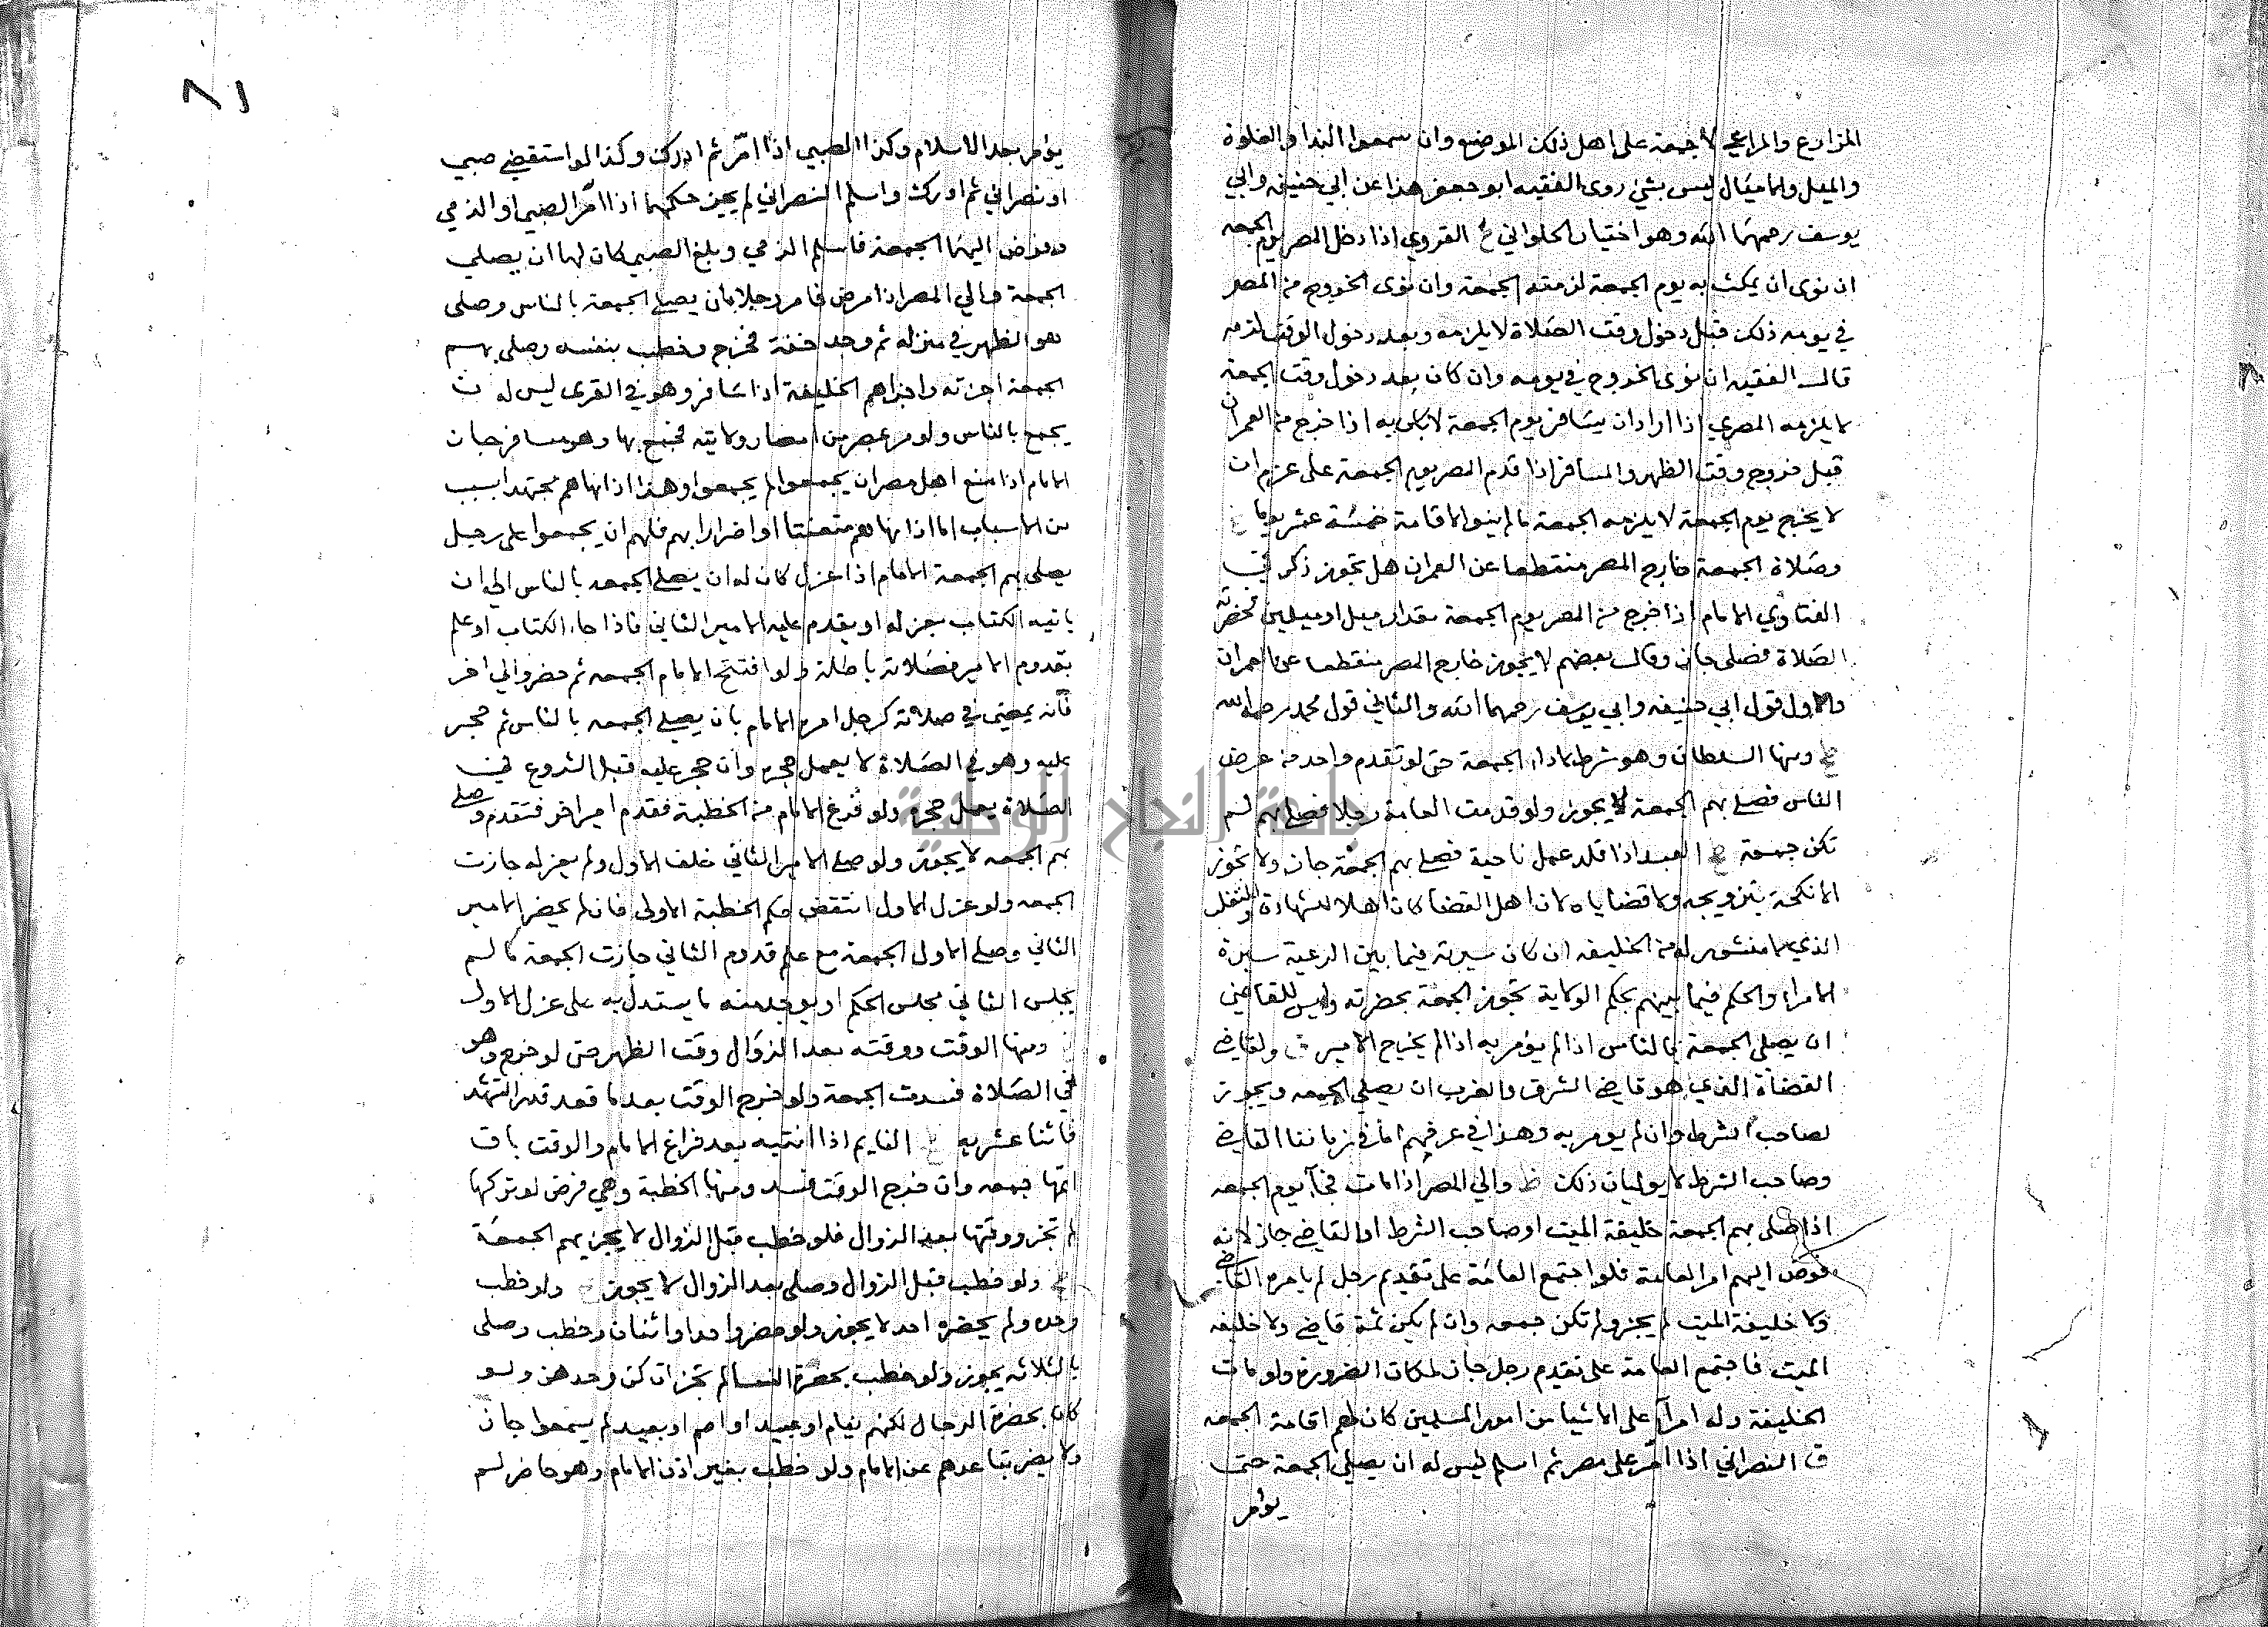 المزارع والمراعي لا جمعة على اهل ذلك الموضع وان سمعوا الندا والغلوة
والميل والاميال ليس بشي روى الفقيه ابو جعفر هذا عن ابي حنيفه وابي
يوسف رحمهما الله وهو اختيار الحلواني القروي اذا دخل المصر يوم الجمعه
ان نوى ان يمكث به يوم الجمعة لزمته الجمعة وان نوى الخروج من المصر
في يومه ذلك قبل دخول وقت الصلاة لا يلزمه وبعد دخول الوقت لزمه
قال الفقيه ان نوى الخروج في يومه وان كان بعد دخول وقت الجمعة
لا يلزمه المصري اذا اراد ان يسافر يوم الجمعة لا باس به اذا خرج من العمران
قبل خروج وقت الظهر والمسافر اذا قدم المصر يوم الجمعة على عزم ان
لا يخرج يوم الجمعة لا يلزمه الجمعة ما لم ينو الاقامة خمسة عشر يوما
وصلاة الجمعة خارج المصر منقطعا عن العمران هل تجوز ذكر في
الفتاوي الامام اذا خرج من المصر يوم الجمعة مقدار ميل او ميلين فحضرته
الصلاة فصلى جاز وقال بعضهم لا يجوز خارج المصر منقطعا عن العمران
والاول قول ابي حنيفه وابي يوسف رحمهما الله والثاني قول محمد رحمه الله
ومنها السلطان وهو شرط لاداء الجمعة حتى لو تقدم واحد من عرض
الناس فصلى بهم الجمعة لا يجوز ولو قدمت العامة رجلا فصلى بهم لم
تكن جمعة العبد اذا قلد عمل ناحية فصلى بهم الجمعة جاز ولا تجوز
الانكحة بتزويجه ولا قضاياه لان اهل القضا كان اهلا للشهادة والمتغلب
الذي لا منشور له من الخليفه ان كان سيرته فيما بين الرعية سيرة
الامراء والحكم فيما بينهم بحكم الولاية تجوز الجمعة بحضرته وليس للقاضي
ان يصلي الجمعة بالناس اذا لم يؤمر به اذا لم يخرج الامير ولقاضي
القضاة الذي هو قاضي الشرق والغرب ان يصلي الجمعه ويجوز
لصاحب الشرط وان لم يومر به وهذا في عرفهم اما في زماننا القاضي
وصاحب الشرط لا يوليان ذلك والي المصر اذا مات فجآ يوم الجمعه
اذا صلى بهم الجمعة خليفة الميت او صاحب الشرط او القاضي جاز لانه
فوض اليهم امر العامة فلو اجتمع العامة على تقديم رجل لم يامره القاضي
ولا خليفة الميت لم يجز ولم تكن جمعه وان لم يكن ثمة قاضي ولا خليفه
الميت فاجتمع العامة على تقديم رجل جاز لمكان الضرورة ولو مات
الخليفة وله امرآ على الاشيا من امور المسلمين كان لهم اقامة الجمعه
ق النصراني اذا امر على مصر ثم اسلم ليس له ان يصلي الجمعة حتى
يؤمر
٨١
يؤمر بعد الاسلام وكذا الصبي اذا امر ثم ادرك وكذا لو استقضي صبي
او نصراني ثم ادرك واسلم النصراني لم يجز حكمهما اذا امر الصبي او الذمي
وفوض اليهما الجمعة فاسلم الذمي وبلغ الصبي كان لهما ان يصلي
الجمعة والي المصر اذا مرض فامر رجلا بان يصلي الجمعة بالناس وصلى
هو الظهر في منزله ثم وجد خفة فخرج وخطب بنفسه وصلى بهم
الجمعة اجزته واجزاهم الخليفة اذا سافر وهو في القرى ليس له ان
يجمع بالناس ولو مر بمصر من امصار ولايته فجمع بها وهو مسافر جاز
الامام اذا منع اهل مصر ان يجمعوا لم يجمعوا وهذا اذا نهاهم مجتهدا بسبب
من الاسباب اما اذا نهاهم متعنتا او اضرارا بهم فلهم ان يجمعوا على رجل
يصلي بهم الجمعة الامام اذا عزل كان له ان يصلي الجمعه بالناس الى ان
ياتيه الكتاب بعزله او يقدم عليه الامير الثاني فاذا جاء الكتاب او علم
بقدوم الامير فصلاته باطلة ولو افتتح الامام الجمعه ثم حضر والي اخر
فانه يمضي في صلاته كرجل امره الامام بان يصلي الجمعه بالناس ثم حجر
عليه وهو في الصلاة لا يعمل حجره وان حجر عليه قبل الشروع في
الصلاة يعمل حجره ولو فرغ الامام من الخطبة فقدم امير اخر فتقدم وصلى
بهم الجمعه لا يجوز ولو صلى الامير الثاني خلف الاول ولم يعزله جازت
الجمعه ولو عزل الاول انتقض حكم الخطبة الاولى فان لم يحضر الامير
الثاني وصلى الاول الجمعة مع علم قدوم الثاني جازت الجمعة ما لم
يجلس الثاني مجلس الحكم او يوجد منه ما يستدل به على عزل الاول
ومنها الوقت ووقته بعد الزوال وقت الظهر حتى لو خرج وهو
في الصلاة فسدت الجمعة ولو خرج الوقت بعد ما قعد قدر التشهد
فاثنا عشريه النايم اذا انتبه بعد فراغ الامام والوقت باق
اتمها جمعه وان خرج الوقت فسد ومنها الخطبة وهي فرض لو تركها
لم تجز ووقتها بعد الزوال فلو خطب قبل الزوال لا يجزيهم الجمعة
ولو خطب قبل الزوال وصلى بعد الزوال لا يجوز ولو خطب
وحده ولم يحضره احد لا يجوز ولو حضر واحد او اثنان وخطب وصلى
بالثلاثه يجوز ولو خطب بحضرة النسا لم تجز ان كن وحدهن ولو
كان بحضرة الرجال لكنهم نيام او عبيد او اصم او بعيد لم يسمعوا جاز
ولا يضر تباعدهم عن الامام ولو خطب بغير اذن الامام وهو حاضر لم
جامعة النجاح الوطنية